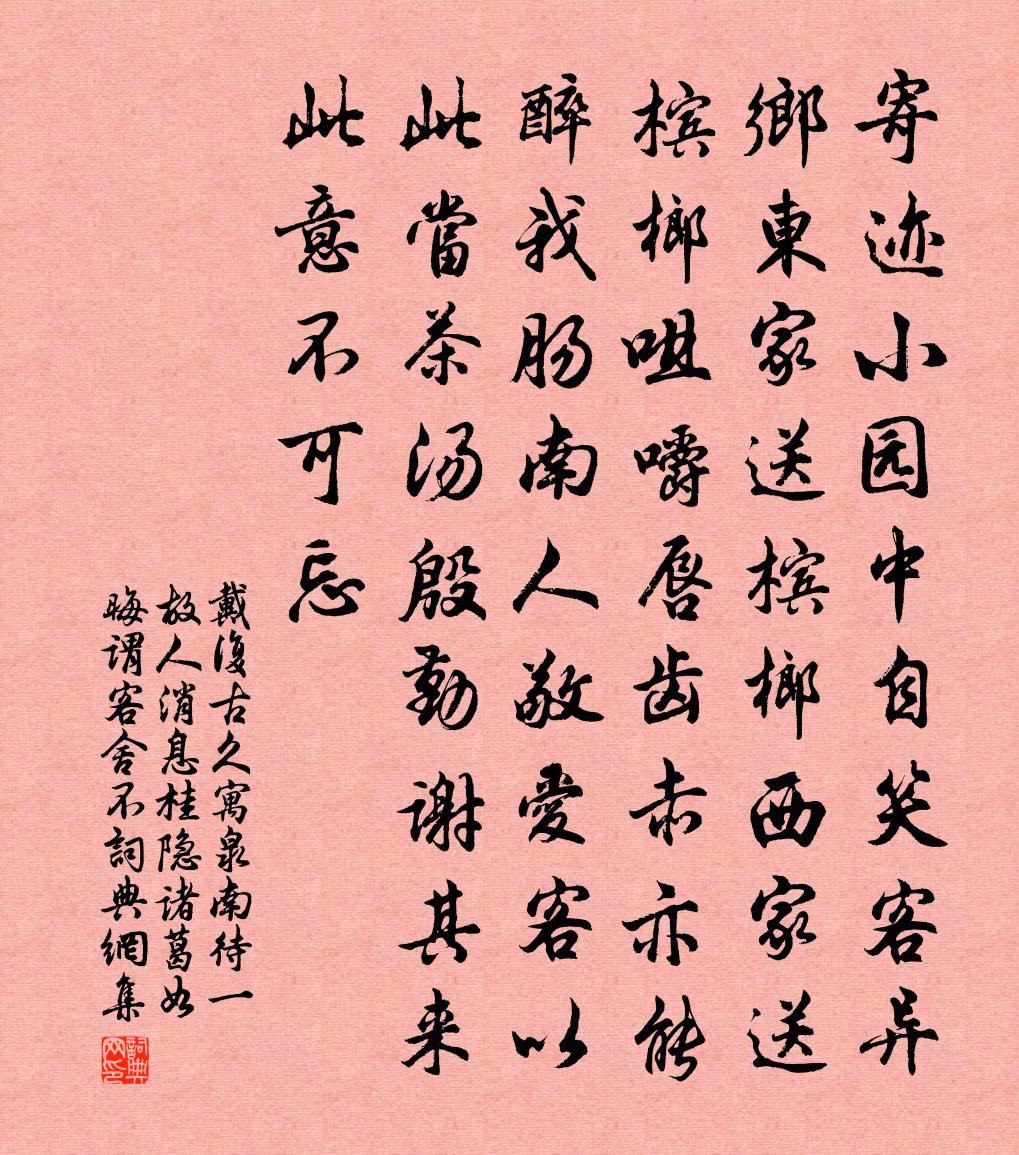 寄迹小园中自笑客异
鄉東家送槟榔西家送
槟榔咀嚼唇齿赤亦能
醉我肠南人敬愛客以
此當茶汤殷勤谢其来
此意不可忘
戴復古久寓泉南待一
故人消息桂隐诸葛如
晦谓客舍不詞典網集